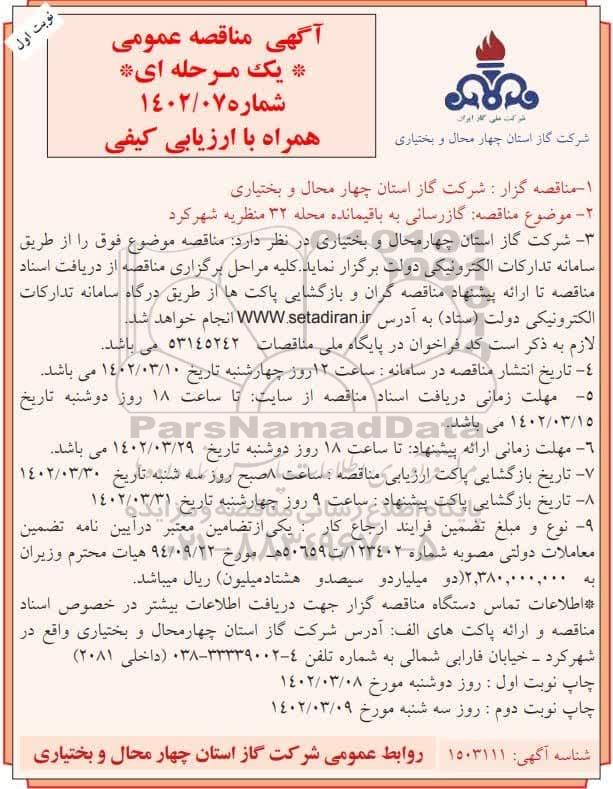 نوبت اول
آگهی مناقصه عمومی
* یک مرحله ای*
شماره۱۴۰۲/۰۷
همراه با ارزیابی کیفی
شرکت ملی گاز ایران
شرکت گاز استان چهار محال و بختیاری
۱-مناقصه گزار : شرکت گاز استان چهار محال و بختیاری
۲- موضوع مناقصه: گازرسانی به باقیمانده محله ۳۲ منظریه شهرکرد
۳- شرکت گاز استان چهارمحال و بختیاری در نظر دارد: مناقصه موضوع فوق را از طریق
سامانه تدارکات الکترونیکی دولت برگزار نماید.کلیه مراحل برگزاری مناقصه از دریافت اسناد
مناقصه تا ارائه پیشنهاد مناقصه گران و بازگشایی پاکت ها از طریق درگاه سامانه تدارکات
الکترونیکی دولت (ستاد) به آدرس WWW.setadiran.ir انجام خواهد شد.
لازم به ذکر است کد فراخوان در پایگاه ملی مناقصات ۵۳۱۴۵۲۴۲ می باشد.
۴- تاریخ انتشار مناقصه در سامانه : ساعت ۱۲روز چهارشنبه تاریخ ۱۴۰۲/۰۳/۱۰ می باشد.
۵- مهلت زمانی دریافت اسناد مناقصه از سایت: تا ساعت ۱۸ روز دوشنبه تاریخ
۱۴۰۲/۰۳/۱۵ می باشد.
ParsNamadData
۶- مهلت زمانی ارائه پیشنهاد: تا ساعت ۱۸ روز دوشنبه تاریخ ۱۴۰۲/۰۳/۲۹ می باشد.
۷- تاریخ بازگشایی پاکت ارزیابی مناقصه : ساعت ۸صبح روز سه شنبه تاریخ ۱۴۰۲/۰۳/۳۰
۸- تاریخ بازگشایی پاکت پیشنهاد : ساعت ۹ روز چهارشنبه تاریخ ۱۴۰۲/۰۳/۳۱
پایگاه اطلاع رسانی مناقصه و مزایده
۹- نوع و مبلغ تضمین فرایند ارجاع کار : یکی‌ازتضامین معتبر درآیین نامه تضمین
معاملات دولتی مصوبه شماره ۱۲۳۴۰۲/ت۵۰۶۵۹هـ مورخ ۹۴/۰۹/۲۲ هیات محترم وزیران
۰۲۱-۸۸۳۴۹۶۷۰-۵
به ۲,۳۸۰,۰۰۰,۰۰۰(دو میلیاردو سیصدو هشتادمیلیون) ریال میباشد.
*اطلاعات تماس دستگاه مناقصه گزار جهت دریافت اطلاعات بیشتر در خصوص اسناد
مناقصه و ارائه پاکت های الف: آدرس شرکت گاز استان چهارمحال و بختیاری واقع در
شهرکرد ـ خیابان فارابی شمالی به شماره تلفن ۴-۳۳۳۳۹۰۰۲-۰۳۸ (داخلی ۲۰۸۱)
چاپ نوبت اول : روز دوشنبه مورخ ۱۴۰۲/۰۳/۰۸
چاپ نوبت دوم : روز سه شنبه مورخ ۱۴۰۲/۰۳/۰۹
شناسه آگهی: ۱۵۰۳۱۱۱
روابط عمومی شرکت گاز استان چهار محال و بختیاری